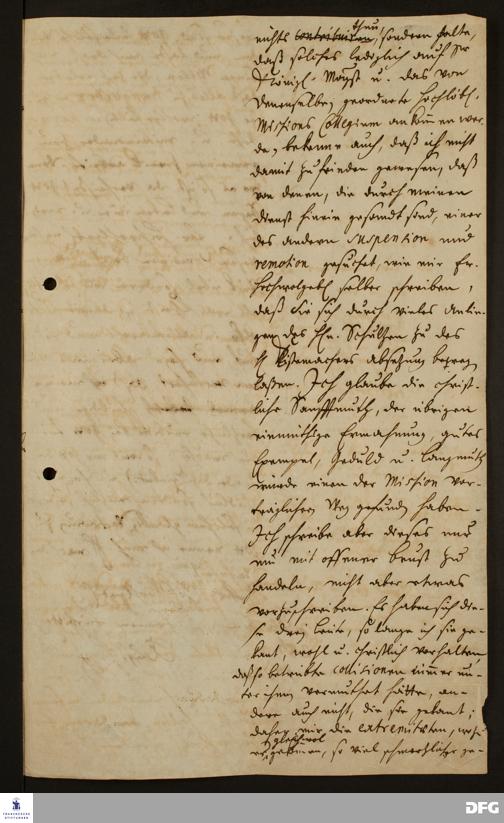 nichts contribuiren thun, sondern halte,
daß solches lediglich auf Sr
Königl. Mayst u. das von
Denenselben geordnete hochlöbl.
Missions Collegium ankommen wer-
de, bekenne auch, daß ich nicht
damit zufrieden gewesen, daß
von denen, die durch meinen
dienst hinein gesandt sind, einer
des andern suspension und
remotion gesuchet, wie mir Ew.
hochwolgebl selber schreiben,
daß Sie sich durch vieles anlie-
gen des Hn. Schultzen zu des
H Kistenmachers absetzung bewegen
laßen. Ich glaube die christ-
liche Sanfftmuth, der übrigen
einmüthige Ermahnung, gutes
Exempel, Geduld u. langmuth
würde einen der Mission ver-
träglichern Weg gefunden haben.
Ich schreibe aber dieses nur
um mit offener brust zu
handeln, nicht aber etwas
vorzuschreiben. Es haben sich die-
se drey leute, so lange ich sie ge-
kant, wohl u. christlich verhalten,
daß so betrübte collisionen nimmer un-
ter ihnen vermuthet hätte, an-
dere auch nicht, die sie gekant;
daher mir die extremitäten, wozu
es gleichwol gekommen, so viel schmertzlicher ge-
FRANCKESCHE
STIFTUNGEN
DFG